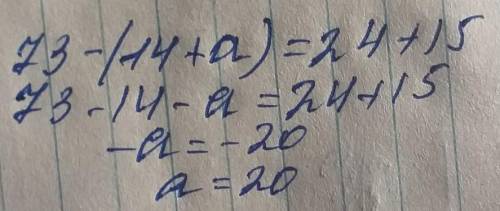 73-(14+a)=24+15
73-14-a=24+15
-a=-20
a=20